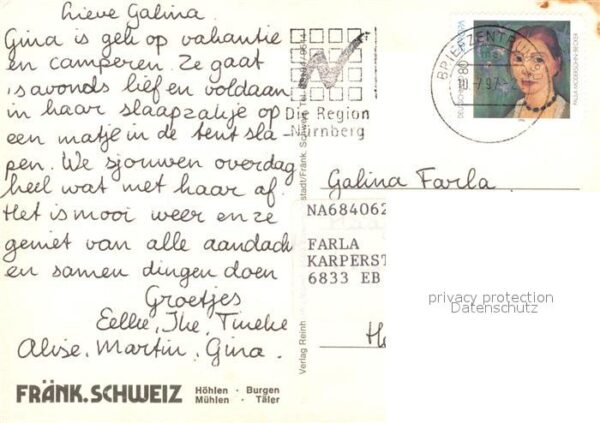 Lieve Galina.
Gina is geh op vakantie
en camperen. Ze gaat
's avonds lief en voldaan
in haar slaapzakje op
een matje in de tent sla-
pen. We sjouwen overdag
heel wat met haar af.
Het is mooi weer en ze
geniet van alle aandach
en samen dingen doen
Groetjes
Tineke
Martin, Gina.
FRÄNK. SCHWEIZ
Höhlen · Burgen
Mühlen · Täler
Verlag Reinh
stadt/Fränk. Schweiz Tel.
Die Region
Nürnberg
BRIEFZENTRUM
80
10.7.97
PAULA MODERSOHN-BECKER
Galina Farla.
NA684062
FARLA
KARPERST
6833 EB
privacy protection
Datenschutz